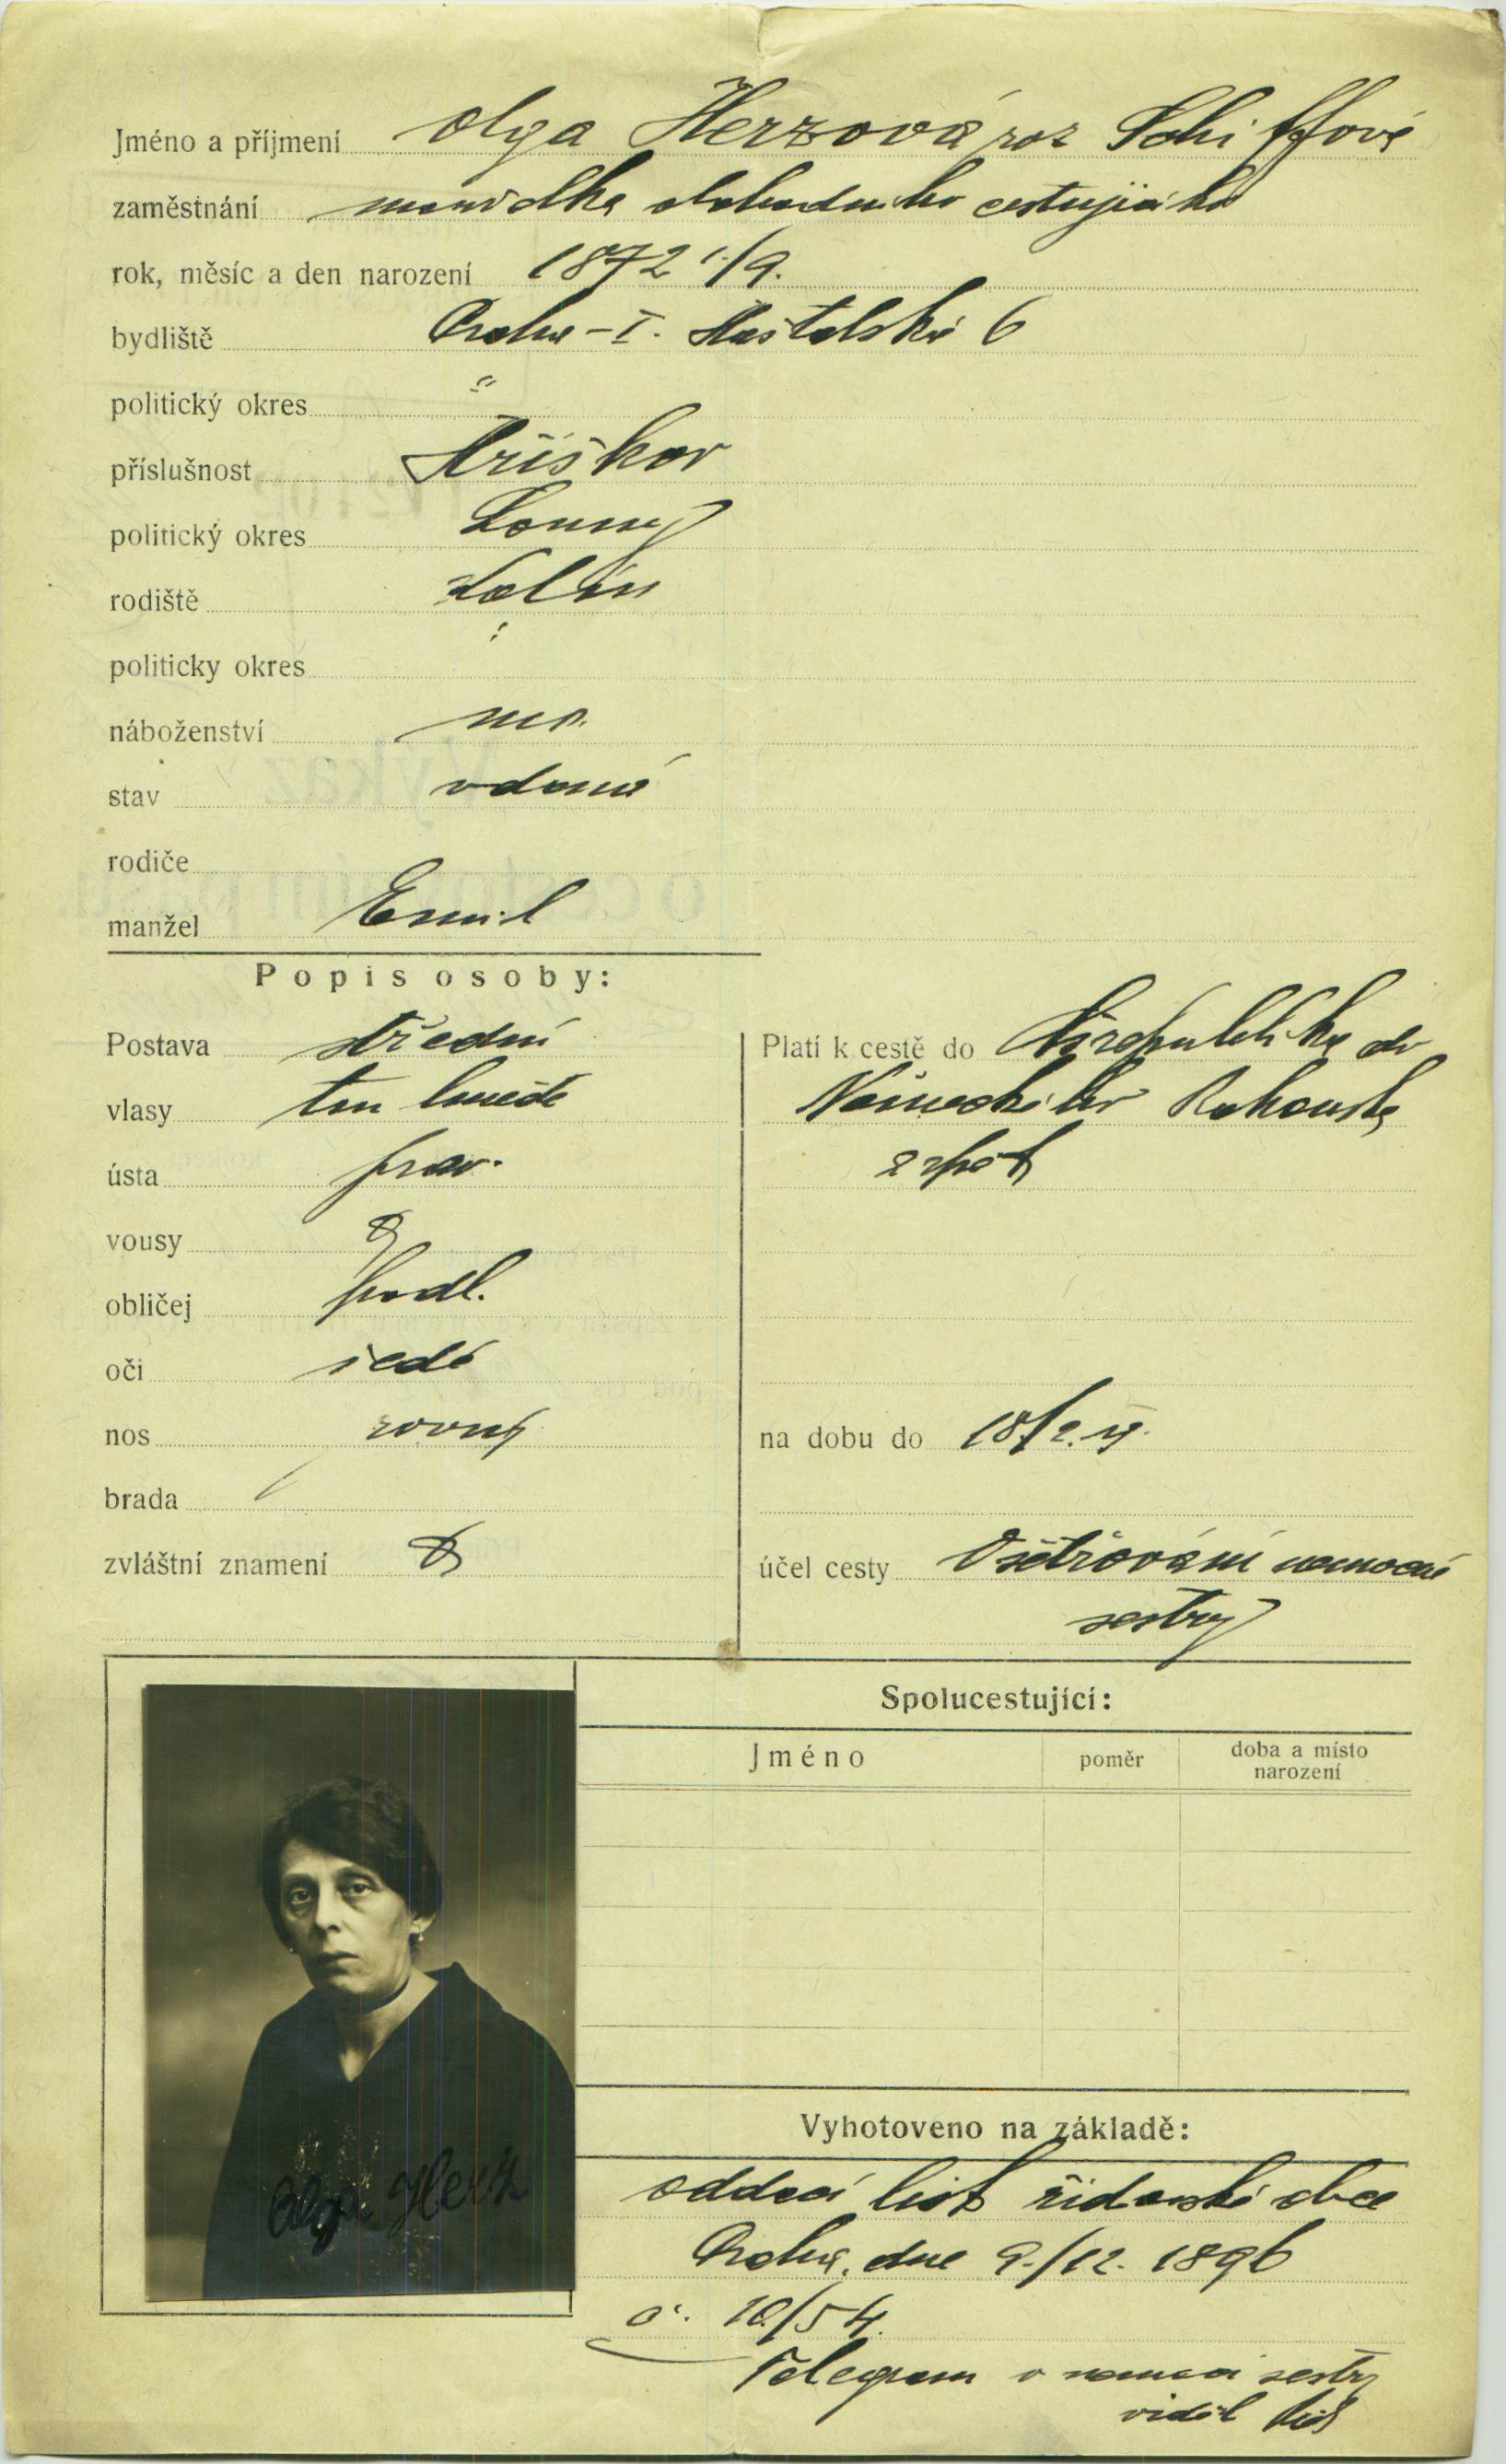 Jméno a příjmení Olga Herzová roz Schiffová
zaměstnání manželka obchodního cestujícího
rok, měsíc a den narození 1872 1./9.
bydliště Praha – I. Haštalská 6
politický okres "
příslušnost Hříškov
politický okres Louny
rodiště Kolín
politicky okres "
náboženství
stav vdaná
rodiče
manžel Emil
Popis osoby:
Postava střední
vlasy tm hnědé
ústa prav.
vousy
obličej podl.
oči šedé
nos rovný
brada
zvláštní znamení
Platí k cestě do do
Německého Rakouska
a zpět
na dobu do 18/2.
účel cesty Ošetřování nemocné
sestry
Spolucestující:
Jméno poměr doba a místo narození
Olga Herz
Vyhotoveno na základě:
oddací list židovské obce
Praha, dne 9./12. 1896
č. 10/54.
Telegram o nemoci sestry
viděl